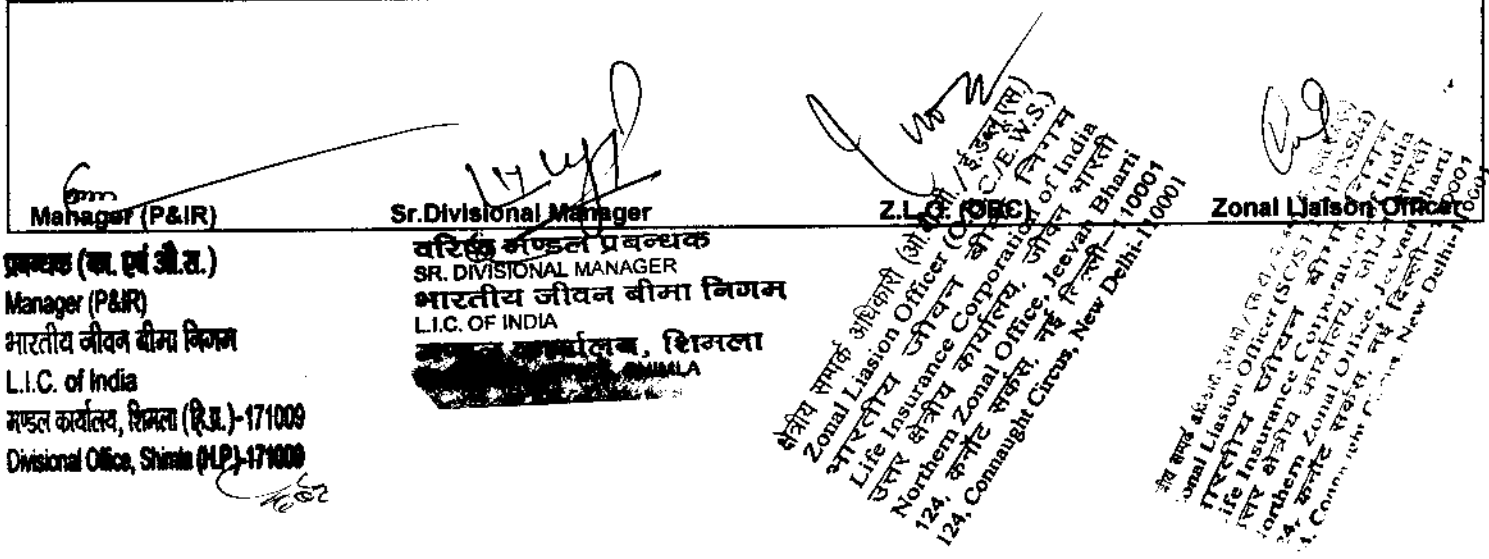 Manager (P&IR)
Sr.Divisional Manager
Z.L.O. (OBC)
Zonal Liaison Officer
प्रबन्धक (का. एवं औ.स.)
Manager (P&IR)
भारतीय जीवन बीमा निगम
L.I.C. of India
मण्डल कार्यालय, शिमला (हि.प्र.)-171009
Divisional Office, Shimla (H.P.)-171009
वरिष्ठ मण्डल प्रबन्धक
SR. DIVISIONAL MANAGER
भारतीय जीवन बीमा निगम
L.I.C. OF INDIA
मण्डल कार्यालय, शिमला
SHIMLA
क्षेत्रीय सम्पर्क अधिकारी (ओ.बी.सी. / ई.डब्लू.एस.)
Zonal Liasion Officer (O.B.C/E.W.S.)
भारतीय जीवन बीमा निगम
Life Insurance Corporation of India
उत्तर क्षेत्रीय कार्यालय, जीवन भारती
Northern Zonal Office, Jeevan Bharti
124, कनॉट सर्कस, नई दिल्ली-110001
124, Connaught Circus, New Delhi-110001
सम्पर्क
onal Liasion Officer (SC/ST
भारतीय जीवन बीमा निगम
ife Insurance Corporation of India
उत्तर क्षेत्रीय कार्यालय, जीवन भारती
orthern Zonal Office, Jeevan Bharti
24, कनॉट सर्कस, नई दिल्ली-110001
4, Connaught Circus, New Delhi-110001